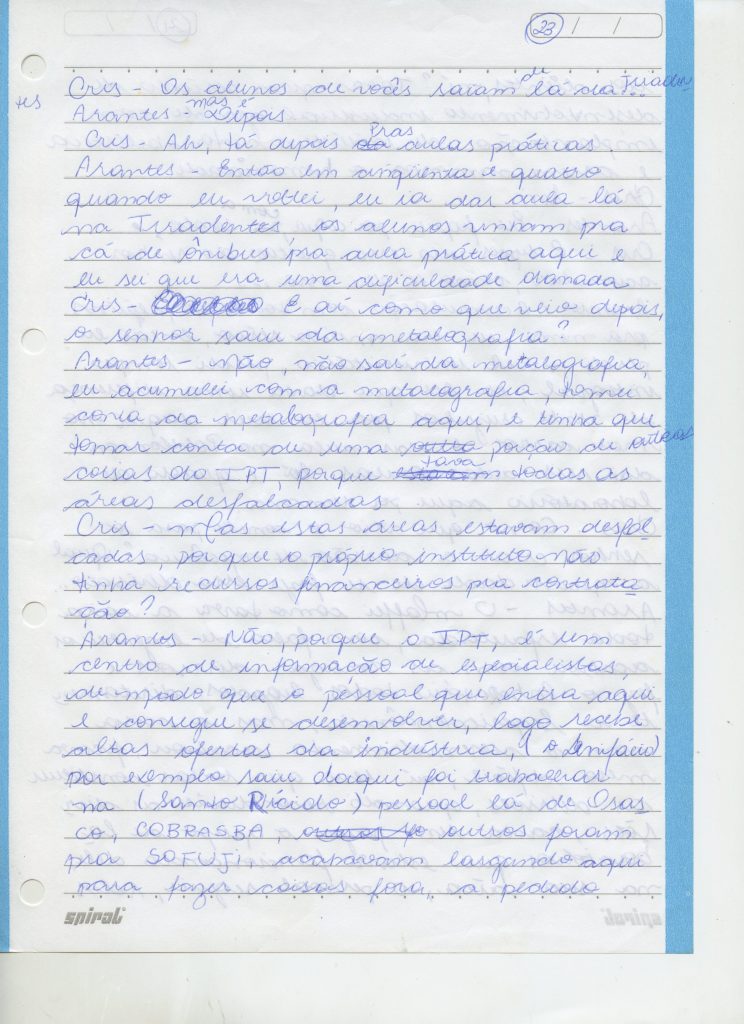 23 / /
Cris - Os alunos de vocês saíam de lá da Tiraden
tes
Arantes - mas é Depois
Cris - Ah, tá depois pras aulas práticas.
Arantes - Então em cinqüenta e quatro
quando eu voltei, eu ia dar aula lá
na Tiradentes, os alunos vinham pra
cá de ônibus, pra aula prática aqui e
eu sei que era uma dificuldade danada
Cris - E aí como que veio depois,
o senhor, saiu da metalografia?
Arantes - Não, não saí da metalografia,
eu acumulei com a metalografia, tomei
conta da metalografia aqui, e tinha que
tomar conta de uma outra porção de outras
coisas do IPT, porque tava estavam todas as
áreas desfalcadas
Cris - Mas estas áreas estavam desfal
cadas, porque o próprio instituto não
tinha recursos financeiros pra contrata
ção?
Arantes - Não, porque o IPT, é um
centro de informação de especialistas,
de modo que o pessoal que entra aqui
e consegue se desenvolver, logo recebe
altas ofertas da indústria, (o Bonifácio)
por exemplo saiu daqui foi trabalhar
na (Santo Rícido) pessoal lá de Osas
co, COBRASBA, outros foram
pra SOFUJI, acabavam largando aqui
para fazer coisas fora, a pedido
spiral